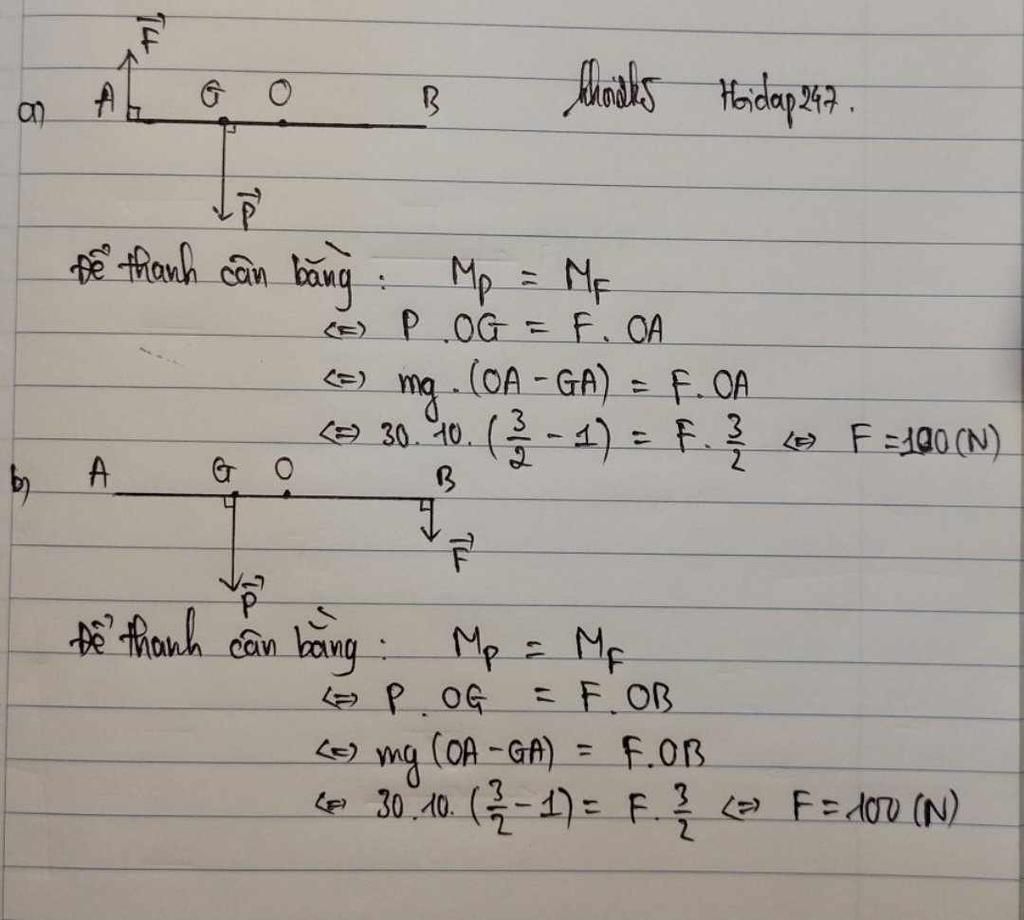 F⃗
a) A G O B Hoidap247.
P⃗
Để thanh cân bằng : Mₚ = M_F
<=> P . OG = F . OA
<=> mg . (OA - GA) = F . OA
<=> 30 . 10 . (3/2 - 1) = F . 3/2 <=> F = 100 (N)
b) A G O B
F⃗
P⃗
Để thanh cân bằng : Mₚ = M_F
<=> P . OG = F . OB
<=> mg (OA - GA) = F . OB
<=> 30 . 10 . (3/2 - 1) = F . 3/2 <=> F = 100 (N)